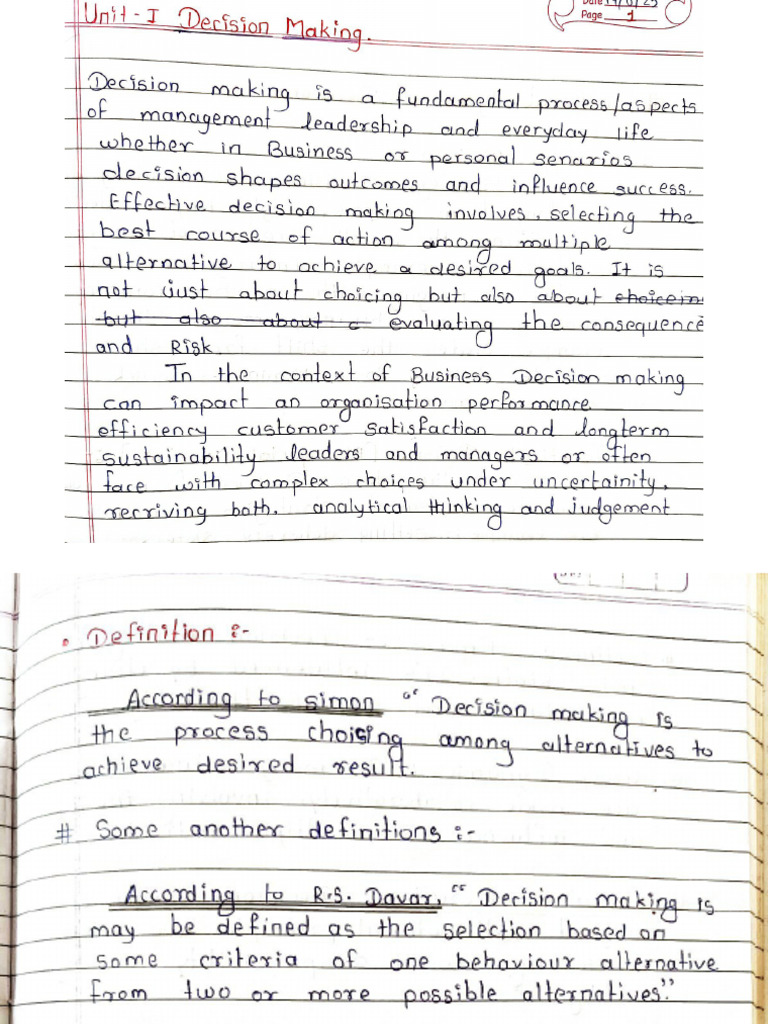 Date
Page 1
Unit-I Decision Making.
Decision making is a fundamental process/aspects
of management leadership and everyday life
whether in Business or personal senarios
decision shapes outcomes and influence success.
Effective decision making involves. selecting the
best course of action among multiple
alternative to achieve a desired goals. It is
not just about choicing but also about choice in
but also about c evaluating the consequence
and Risk.
In the context of Business Decision making
can impact an organisation performance
efficiency customer satisfaction and longterm
sustainability leaders and managers or often
face with complex choices under uncertainity.
recriving both. analytical thinking and judgement
• Definition :-
According to simon " Decision making is
the process choising among alternatives to
achieve desired result.
# Some another definitions :-
According to R.S. Davar, " Decision making is
may be defined as the selection based on
some criteria of one behaviour alternative
from two or more possible alternatives."